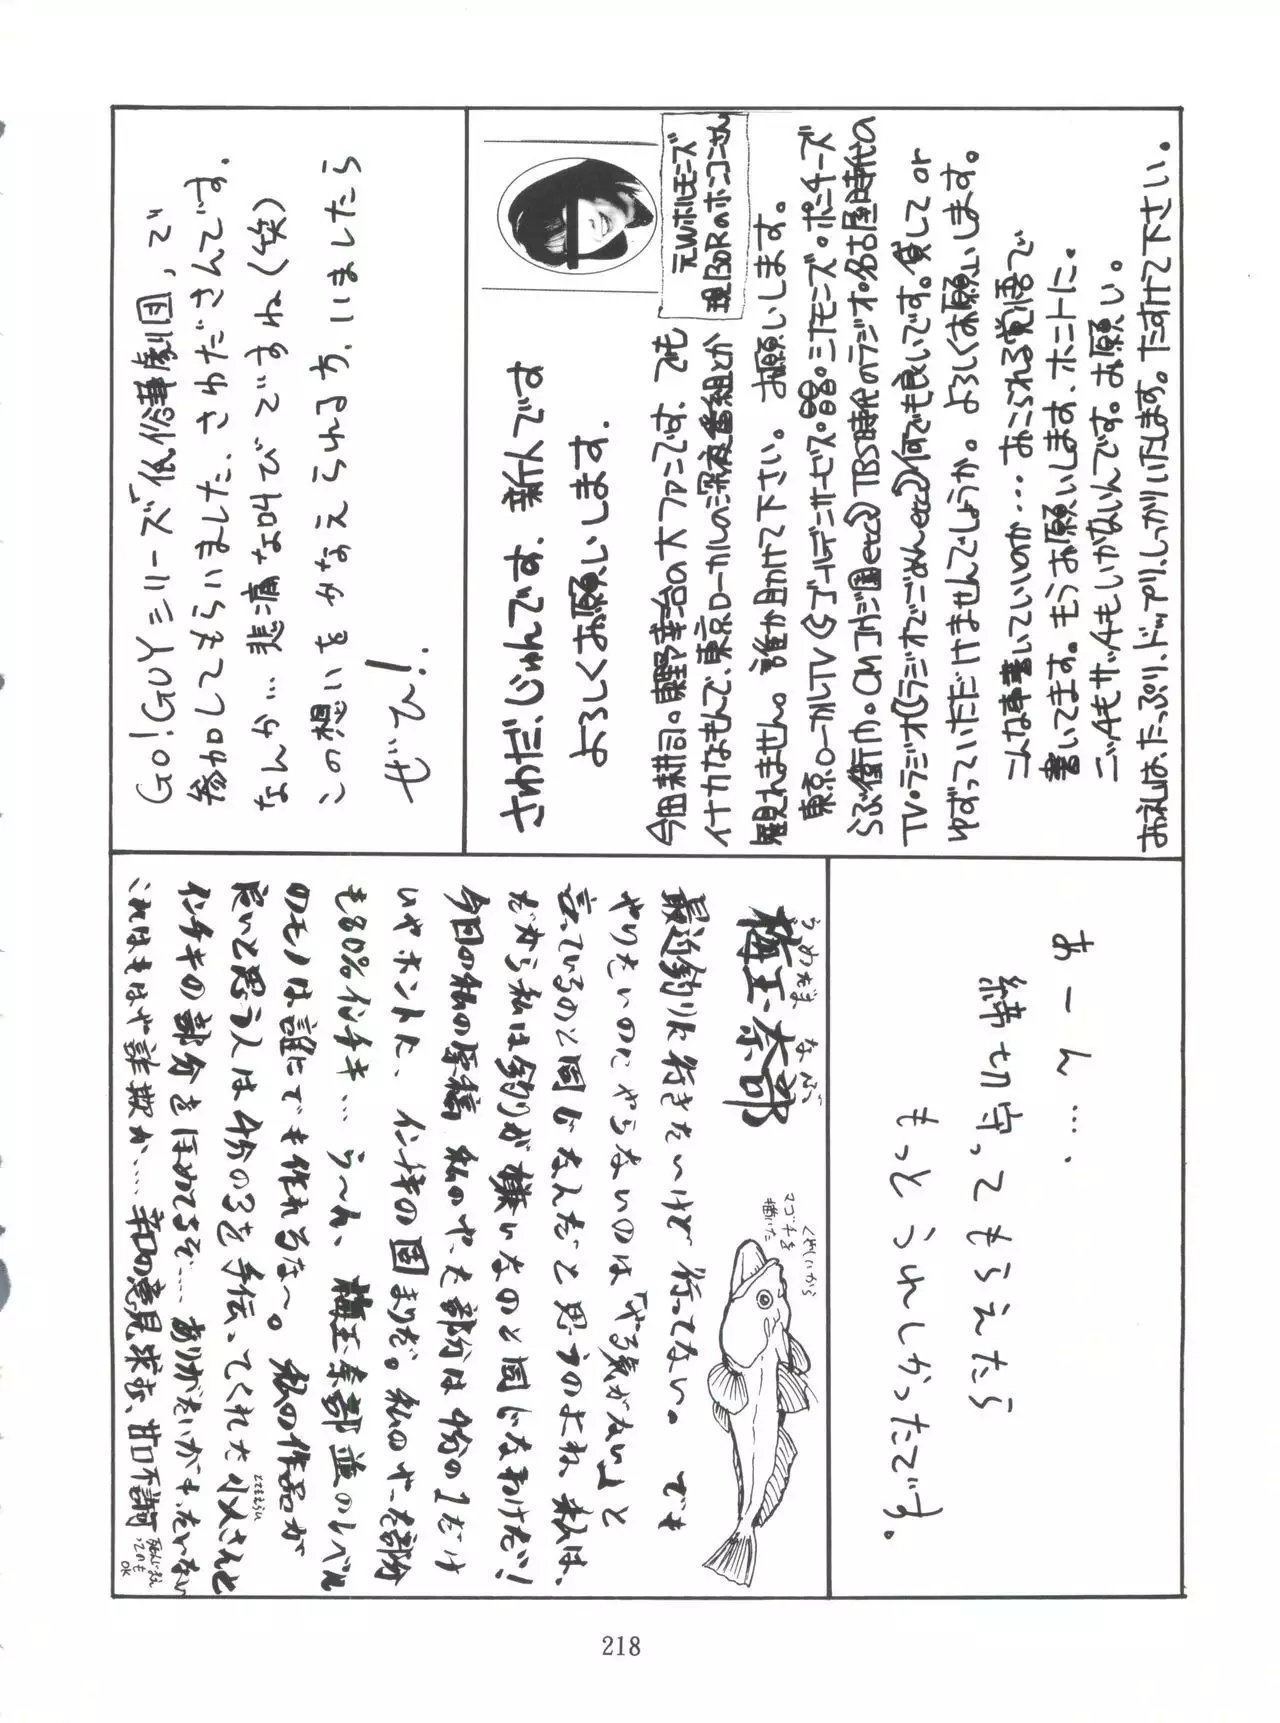 Go!GUYシリーズ「低俗藝劇団」で
参加してもらいました、さわださんです。
なんか…悲痛な叫びですね(笑)
この想いをかなえられる方、いましたら
ぜひ!
さわだ、じゅんです、新人です
よろしくお願いします.
元Wホルモンズ
現130Rのホンコンさん
今田耕司。東野幸治の大ファンです、でも
イナカなもんで、東京ローカルの深夜番組とか
観れません。誰か助けて下さい。お願いします。
東京ローカルTV(ゴールデンサービス・
TBS時代のラジオ・名古屋時代の
TV・ラジオ(ラジオでごめんetc)何でも良いです。貸してor
ゆずっていただけませんでしょうか。よろしくお願いします。
こんな事書いていいのか…おこられる覚悟で
書いてます。もうお願いします、ホントに。
ニッチもサッチもいかないんです。お願い。
お礼は、たっぷり、ドップリ、しっかりいたします。たすけて下さい。
あーん….
締切守ってもらえたら
もっとうれしかったです。
うめだま なぶ
梅玉奈部
くやしいから
マゴチを
描いた
最近釣りに行きたいけど行ってない。でも
やりたいのにやらないのは「やる気がない」と
言っているのと同じなんだと思うのよね、私は、
だから私は釣りが嫌いなのと同じなわけだ!
今回の私の原稿 私のやった部分は4分の1だけ
いやホントに、インチキの固まりだ。私のやった部分
も80%インチキ…うーん、梅玉奈部並のレベル
のモノは誰にでも作れるな〜。私の作品が
良いと思う人は4分の3を手伝ってくれた
インチキの部分をほめてるぞ……ありがたいがもったいない
これはもはや詐欺か……辛口の意見求む、甘口不許可
OK
218